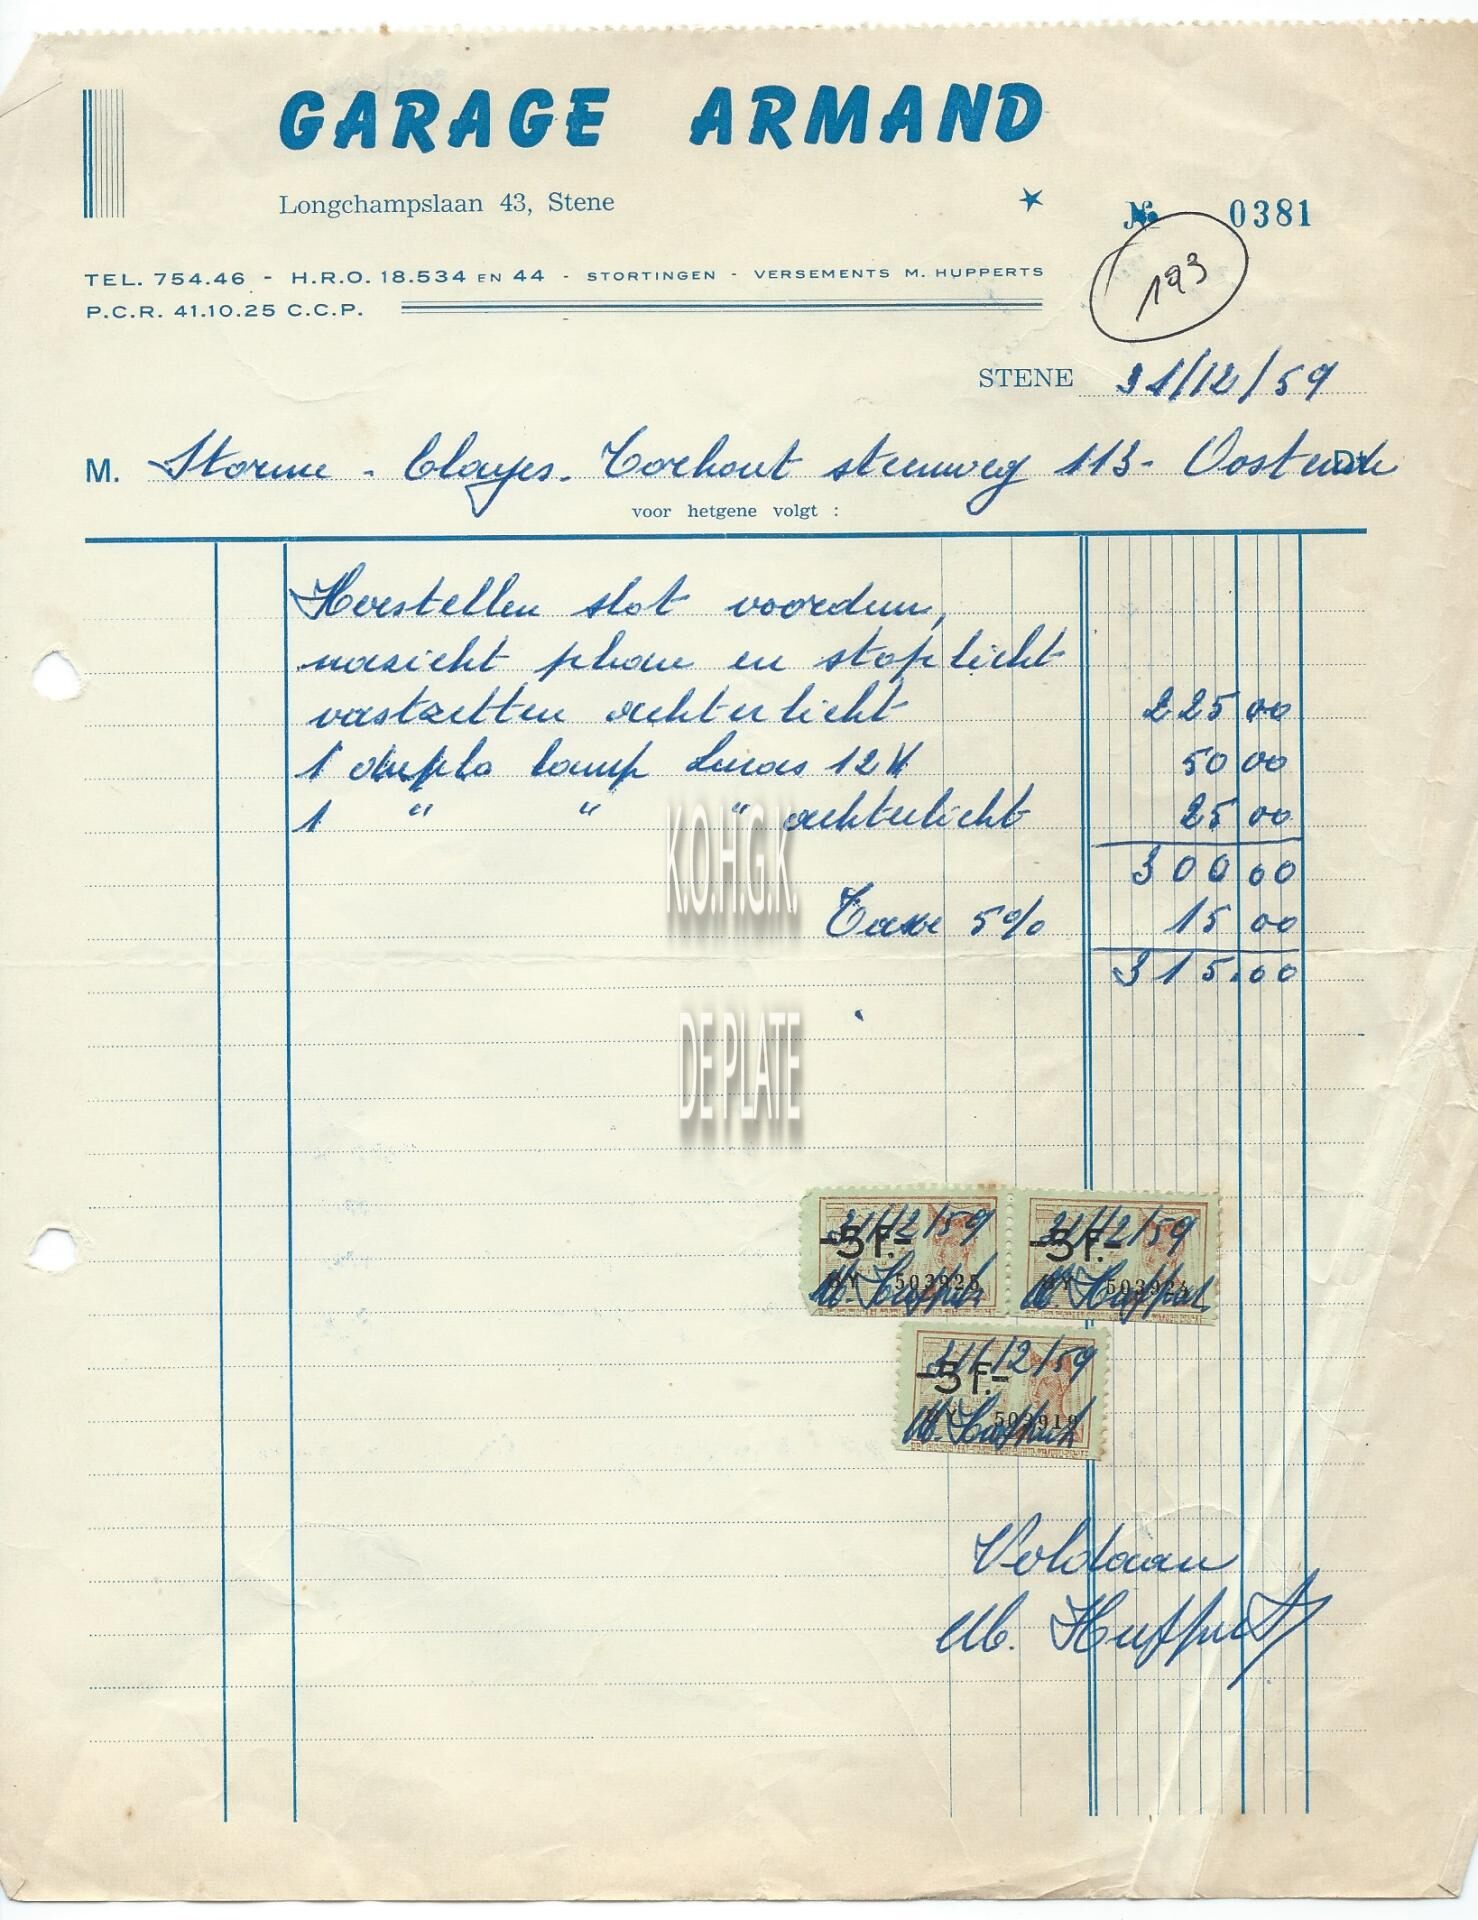 GARAGE ARMAND
Longchampslaan 43, Stene
№ 0381
193
TEL. 754.46 - H.R.O. 18.534 EN 44 - STORTINGEN - VERSEMENTS M. HUPPERTS
P.C.R. 41.10.25 C.C.P.
STENE 31/12/59
M. Storme - Clayes - Torhout steenweg 113 - Oostende Dt
voor hetgene volgt :
Herstellen slot voordeur,
nazicht phare en stoplicht
vastzetten achterlicht 225 00
1 duplo lamp Lucas 12 V 50 00
1 " " " achterlicht 25 00
300 00
Taxe 5% 15 00
315.00
K.O.H.G.K.
DE PLATE
31/12/59 31/12/59
-3 F.- -3 F.-
503925 503924
M. Hupperts M. Hupperts
31/12/59
-3 F.-
503919
M. Hupperts
Voldaan
M. Hupperts